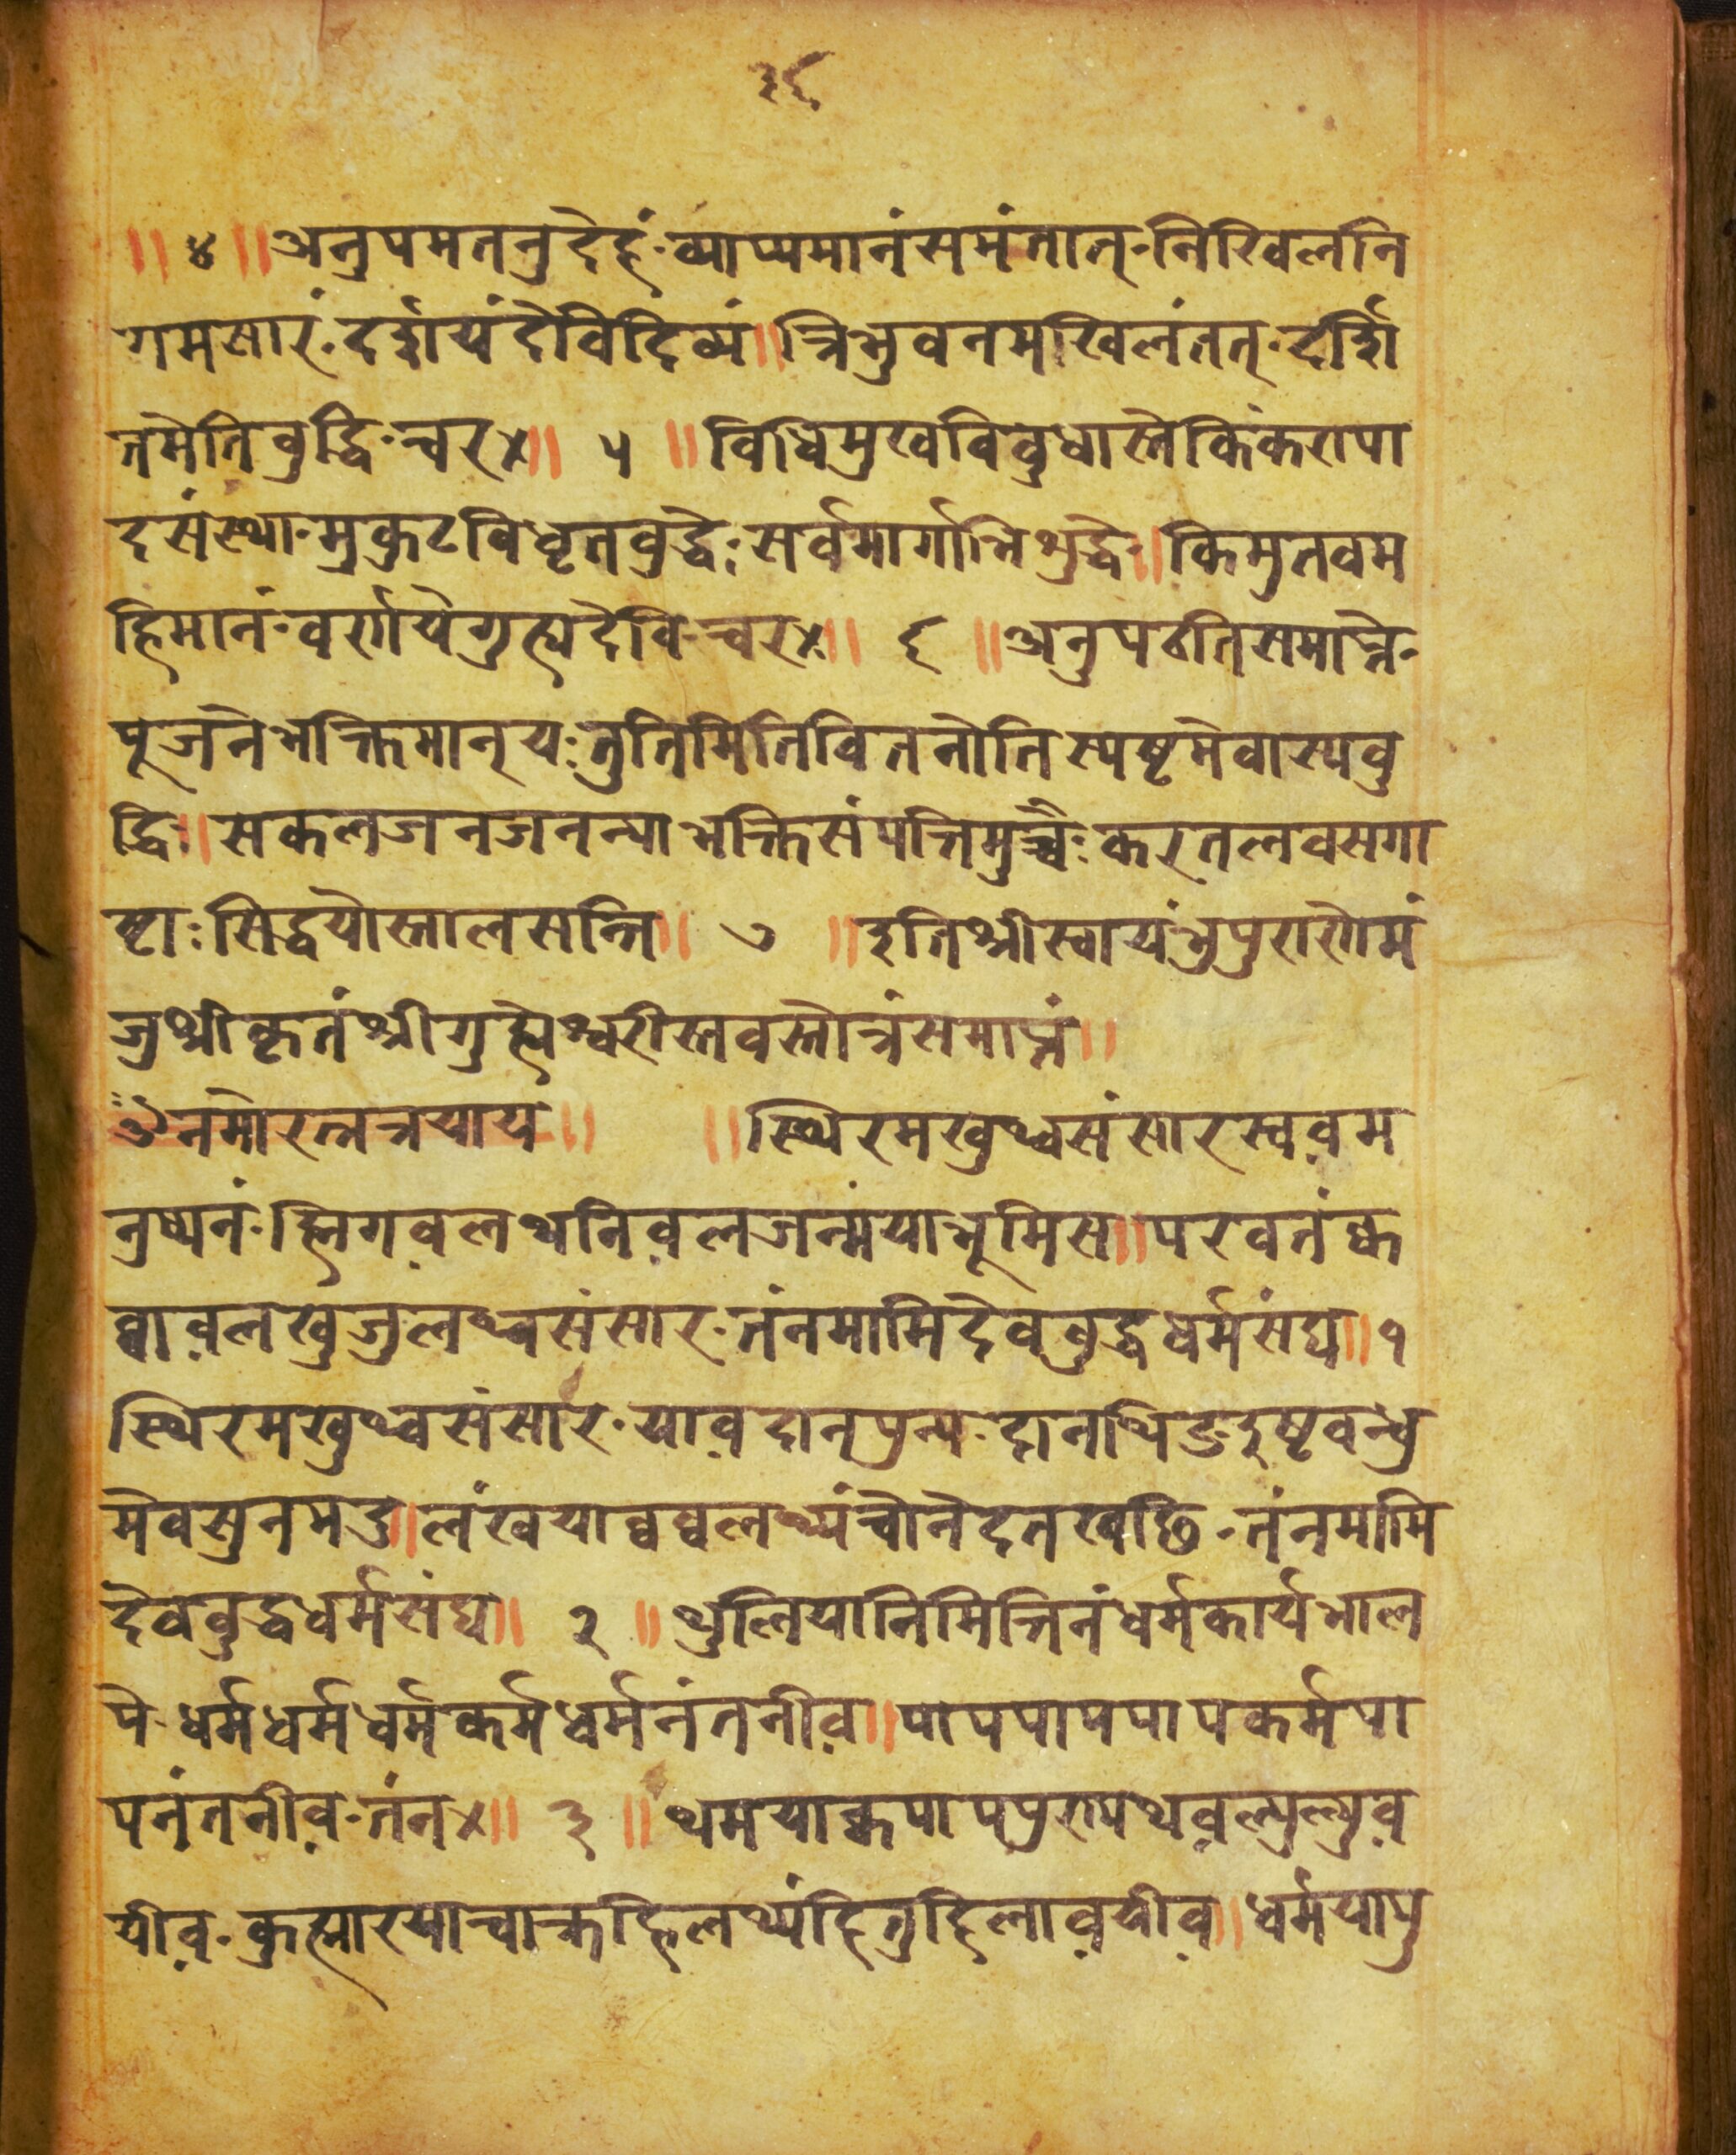 ३६
॥ ४ ॥ अनुपमतनुदेहं·व्याप्यमानंसमंतात्·निखिलनि
गमसारं·दर्द्दायंदेविदिव्यं॥ त्रिभुवनमखिलंतत्·दर्द्दशि
तमेतिबुद्धि·च्चर×॥ ५ ॥ विधिमुखविवुधास्तेकिंकरापा
दसंस्था·मुकुटविधृतवुद्धेः सर्वमार्गाभिशुद्धेः॥ किमुतवम
हिमानं·वर्णायेगुह्यदेवि·च्चर×॥ ६ ॥ अनुपठतिसमाप्ते·
पूजनेभक्तिमान्यः·तुतिमितिवितनोतिस्पष्टमेवास्यवु
द्धिः॥ सकलजनजनन्याभक्तिसंपत्तिमुच्चैः·करतलवसगा
ष्टाः सिद्धयोस्तालसन्ति॥ ७ ॥ इतिश्रीस्वायंभुपुराणेमं
जुश्रीकृतंश्रीगुह्येश्वरीस्तवस्तोत्रंसमाप्तं॥
ॐनमोरत्नत्रयाय॥ ॥ स्थिरमखुथ्वसंसारस्वव़म
नुष्यनं·ह्निगव़लथनिव़लजन्मंयाभूमिस॥ परवतंक्व
व्वाव़लखुंजुलथ्वसंसार·तंनमामिदेवबुद्धधर्मसंघ॥ १
स्थिरमखुथ्वसंसार·याव़दान्पुन्य·दानथिङदुष्टवन्धु
मेवसुनमडु॥ लंखयाव्वव्वलथ्यंच्चोनेदतखछि·तंनमामि
देवबुद्धधर्मसंघ॥ २ ॥ थुलियानिमित्तिनंधर्मकार्यभाल
पे·धर्मधर्मधर्मकर्मधर्मनंतनीव़॥ पापपापपापकर्मपा
पनंतनीव़·तंन×॥ ३ ॥ थमयाक्वपापपुण्यथव़ल्युल्युव़
यीव़·कुह्मारयाच्चाक्तह्लिलथ्यंहितुहिलाव़यीव़॥ धर्मयापु